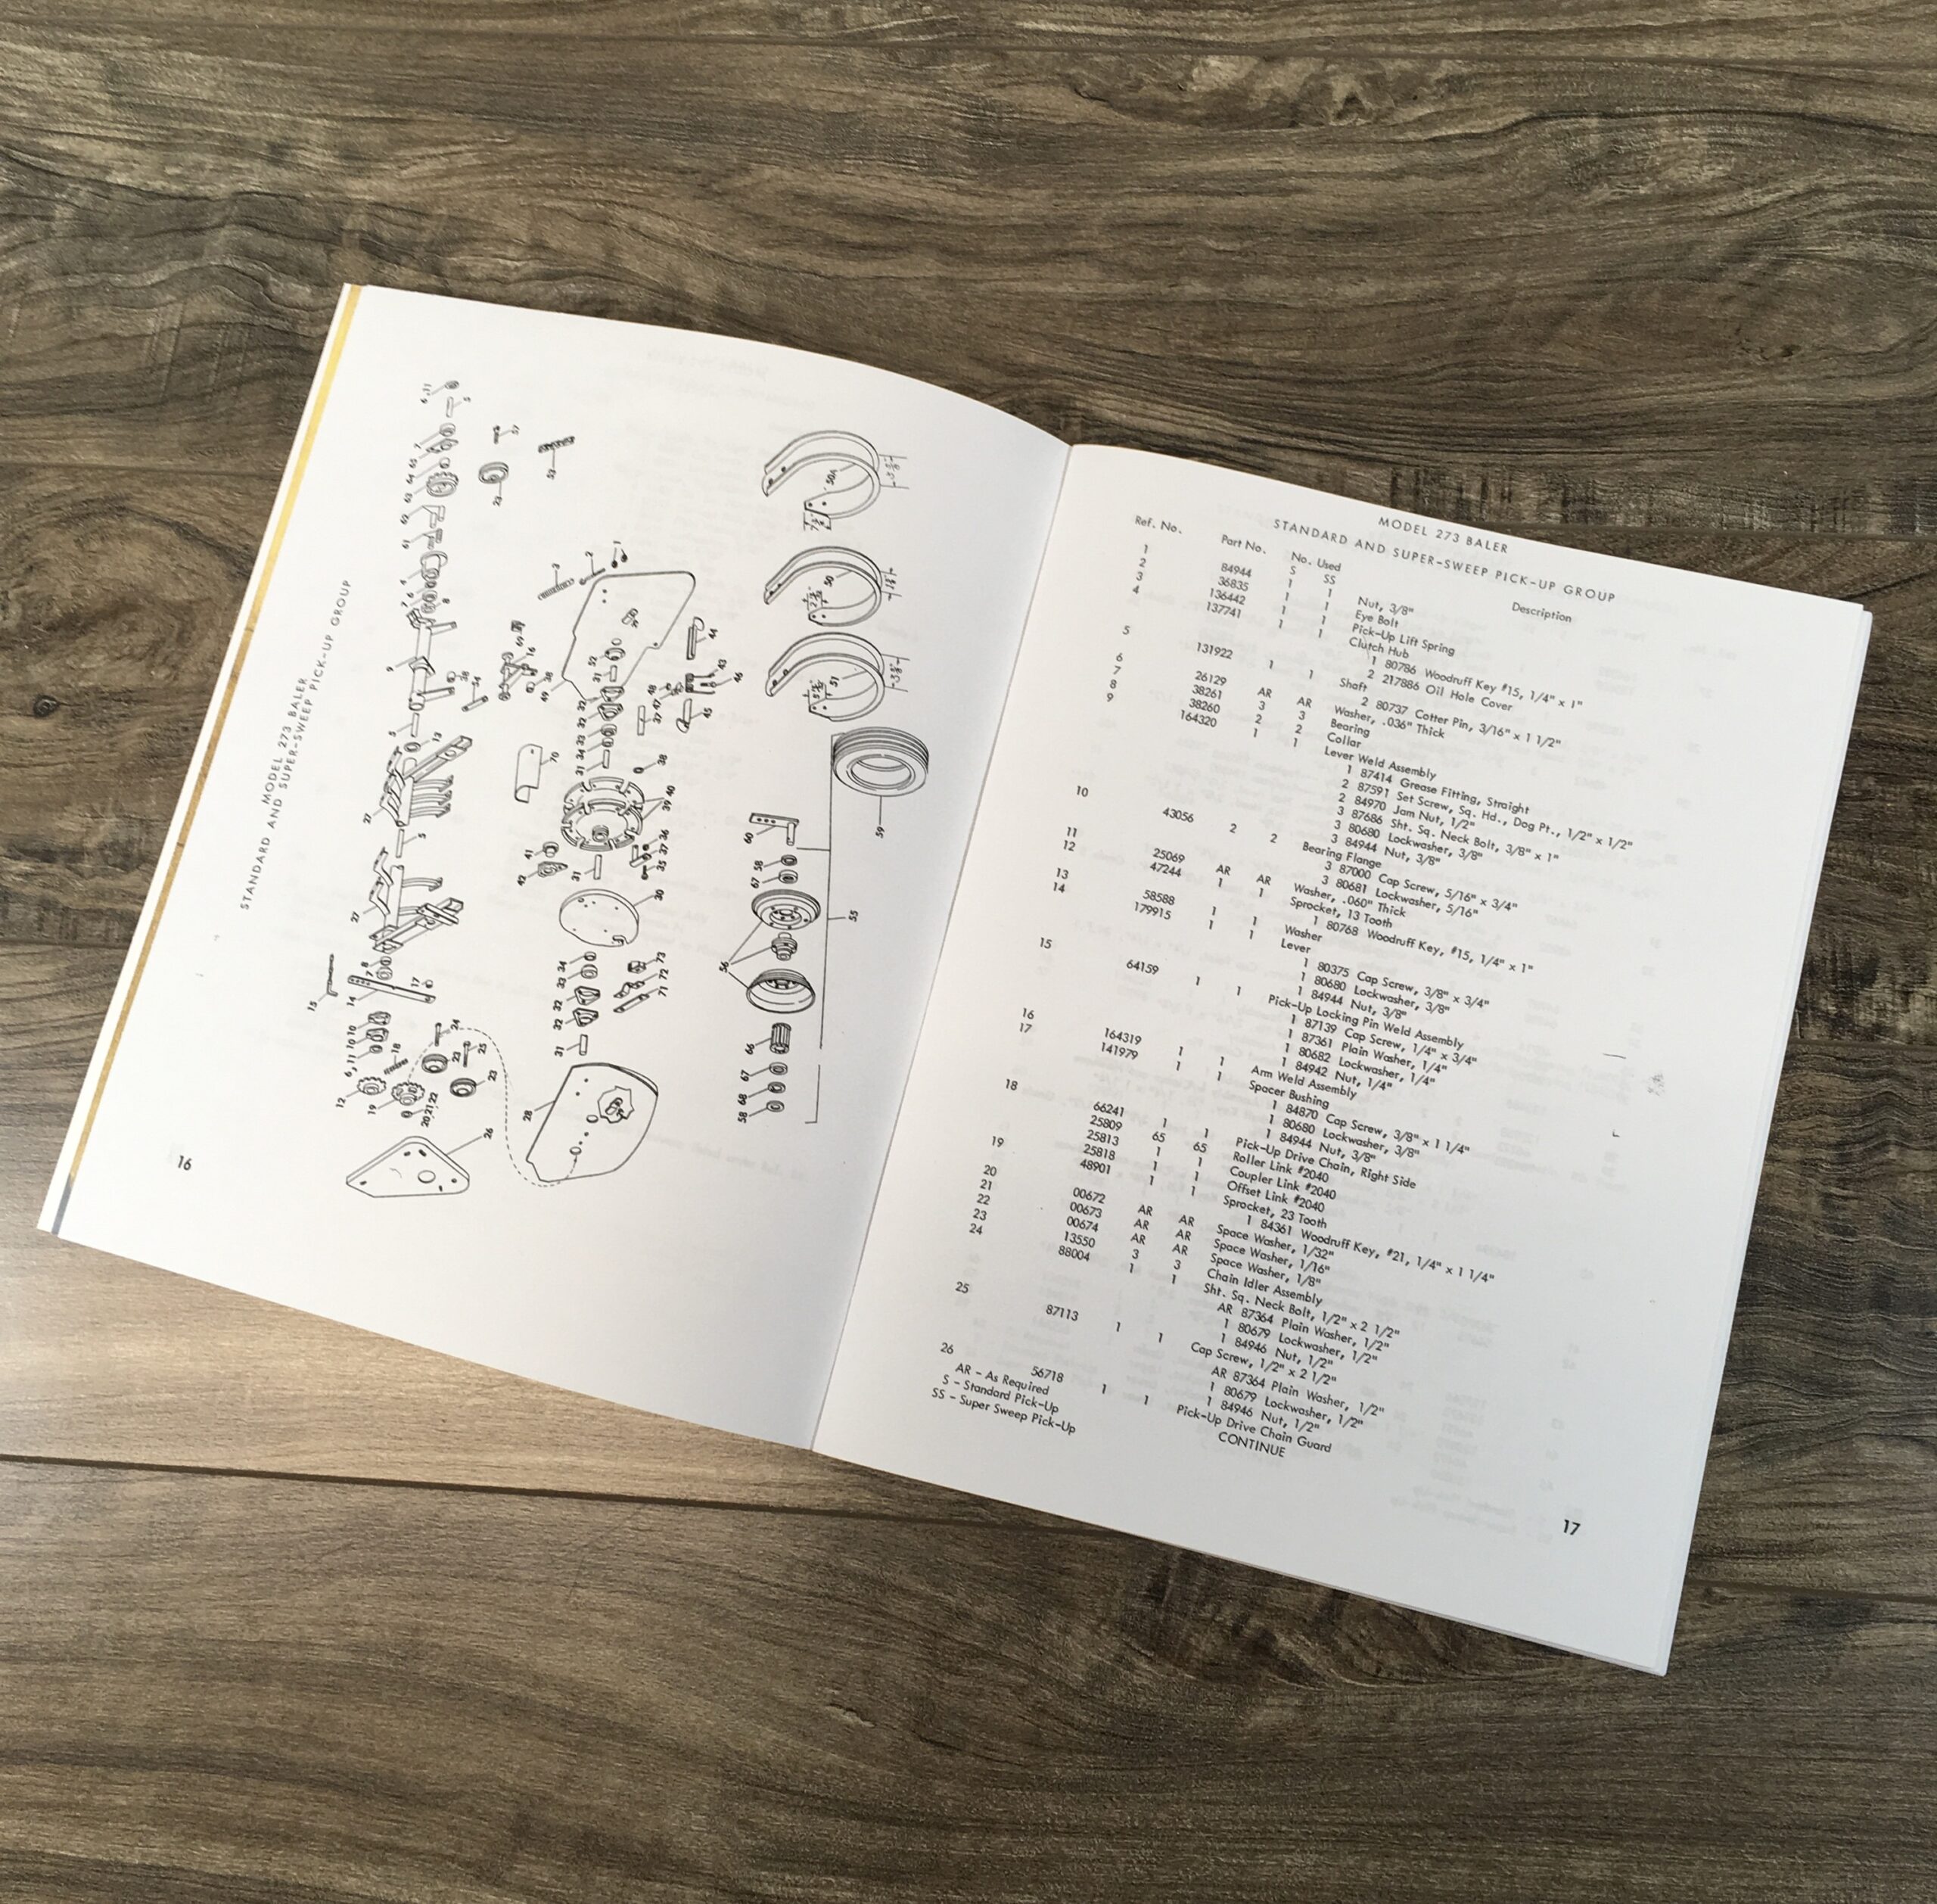 MODEL 273 BALER
STANDARD AND SUPER-SWEEP PICK-UP GROUP
16
MODEL 273 BALER
STANDARD AND SUPER-SWEEP PICK-UP GROUP
Ref. No. Part No. No. Used Description
S SS
1 84944 1 1 Nut, 3/8"
2 36835 1 1 Eye Bolt
3 136442 1 1 Pick-Up Lift Spring
4 137741 1 1 Clutch Hub
1 80786 Woodruff Key #15, 1/4" x 1"
2 217886 Oil Hole Cover
5 131922 1 1 Shaft
2 80737 Cotter Pin, 3/16" x 1 1/2"
6 26129 AR AR Washer, .036" Thick
7 38261 3 3 Bearing
8 38260 2 2 Collar
9 164320 1 1 Lever Weld Assembly
1 87414 Grease Fitting, Straight
2 87591 Set Screw, Sq. Hd., Dog Pt., 1/2" x 1/2"
2 84970 Jam Nut, 1/2"
3 87686 Sht. Sq. Neck Bolt, 3/8" x 1"
3 80680 Lockwasher, 3/8"
3 84944 Nut, 3/8"
10 43056 2 2 Bearing Flange
3 87000 Cap Screw, 5/16" x 3/4"
3 80681 Lockwasher, 5/16"
11 25069 AR AR Washer, .060" Thick
12 47244 1 1 Sprocket, 13 Tooth
1 80768 Woodruff Key, #15, 1/4" x 1"
13 58588 1 1 Washer
14 179915 1 1 Lever
1 80375 Cap Screw, 3/8" x 3/4"
1 80680 Lockwasher, 3/8"
1 84944 Nut, 3/8"
15 64159 1 1 Pick-Up Locking Pin Weld Assembly
1 87139 Cap Screw, 1/4" x 3/4"
1 87361 Plain Washer, 1/4"
1 80682 Lockwasher, 1/4"
1 84942 Nut, 1/4"
16 164319 1 1 Arm Weld Assembly
17 141979 1 1 Spacer Bushing
1 84870 Cap Screw, 3/8" x 1 1/4"
1 80680 Lockwasher, 3/8"
1 84944 Nut, 3/8"
18 66241 1 1 Pick-Up Drive Chain, Right Side
25809 65 65 Roller Link #2040
25813 1 1 Coupler Link #2040
25818 1 1 Offset Link #2040
19 48901 1 1 Sprocket, 23 Tooth
1 84361 Woodruff Key, #21, 1/4" x 1 1/4"
20 00672 AR AR Space Washer, 1/32"
21 00673 AR AR Space Washer, 1/16"
22 00674 AR AR Space Washer, 1/8"
23 13550 3 3 Chain Idler Assembly
24 88004 1 1 Sht. Sq. Neck Bolt, 1/2" x 2 1/2"
AR 87364 Plain Washer, 1/2"
1 80679 Lockwasher, 1/2"
1 84946 Nut, 1/2"
25 87113 1 1 Cap Screw, 1/2" x 2 1/2"
AR 87364 Plain Washer, 1/2"
1 80679 Lockwasher, 1/2"
1 84946 Nut, 1/2"
26 56718 1 1 Pick-Up Drive Chain Guard
AR - As Required
S - Standard Pick-Up
SS - Super Sweep Pick-Up
CONTINUE
17